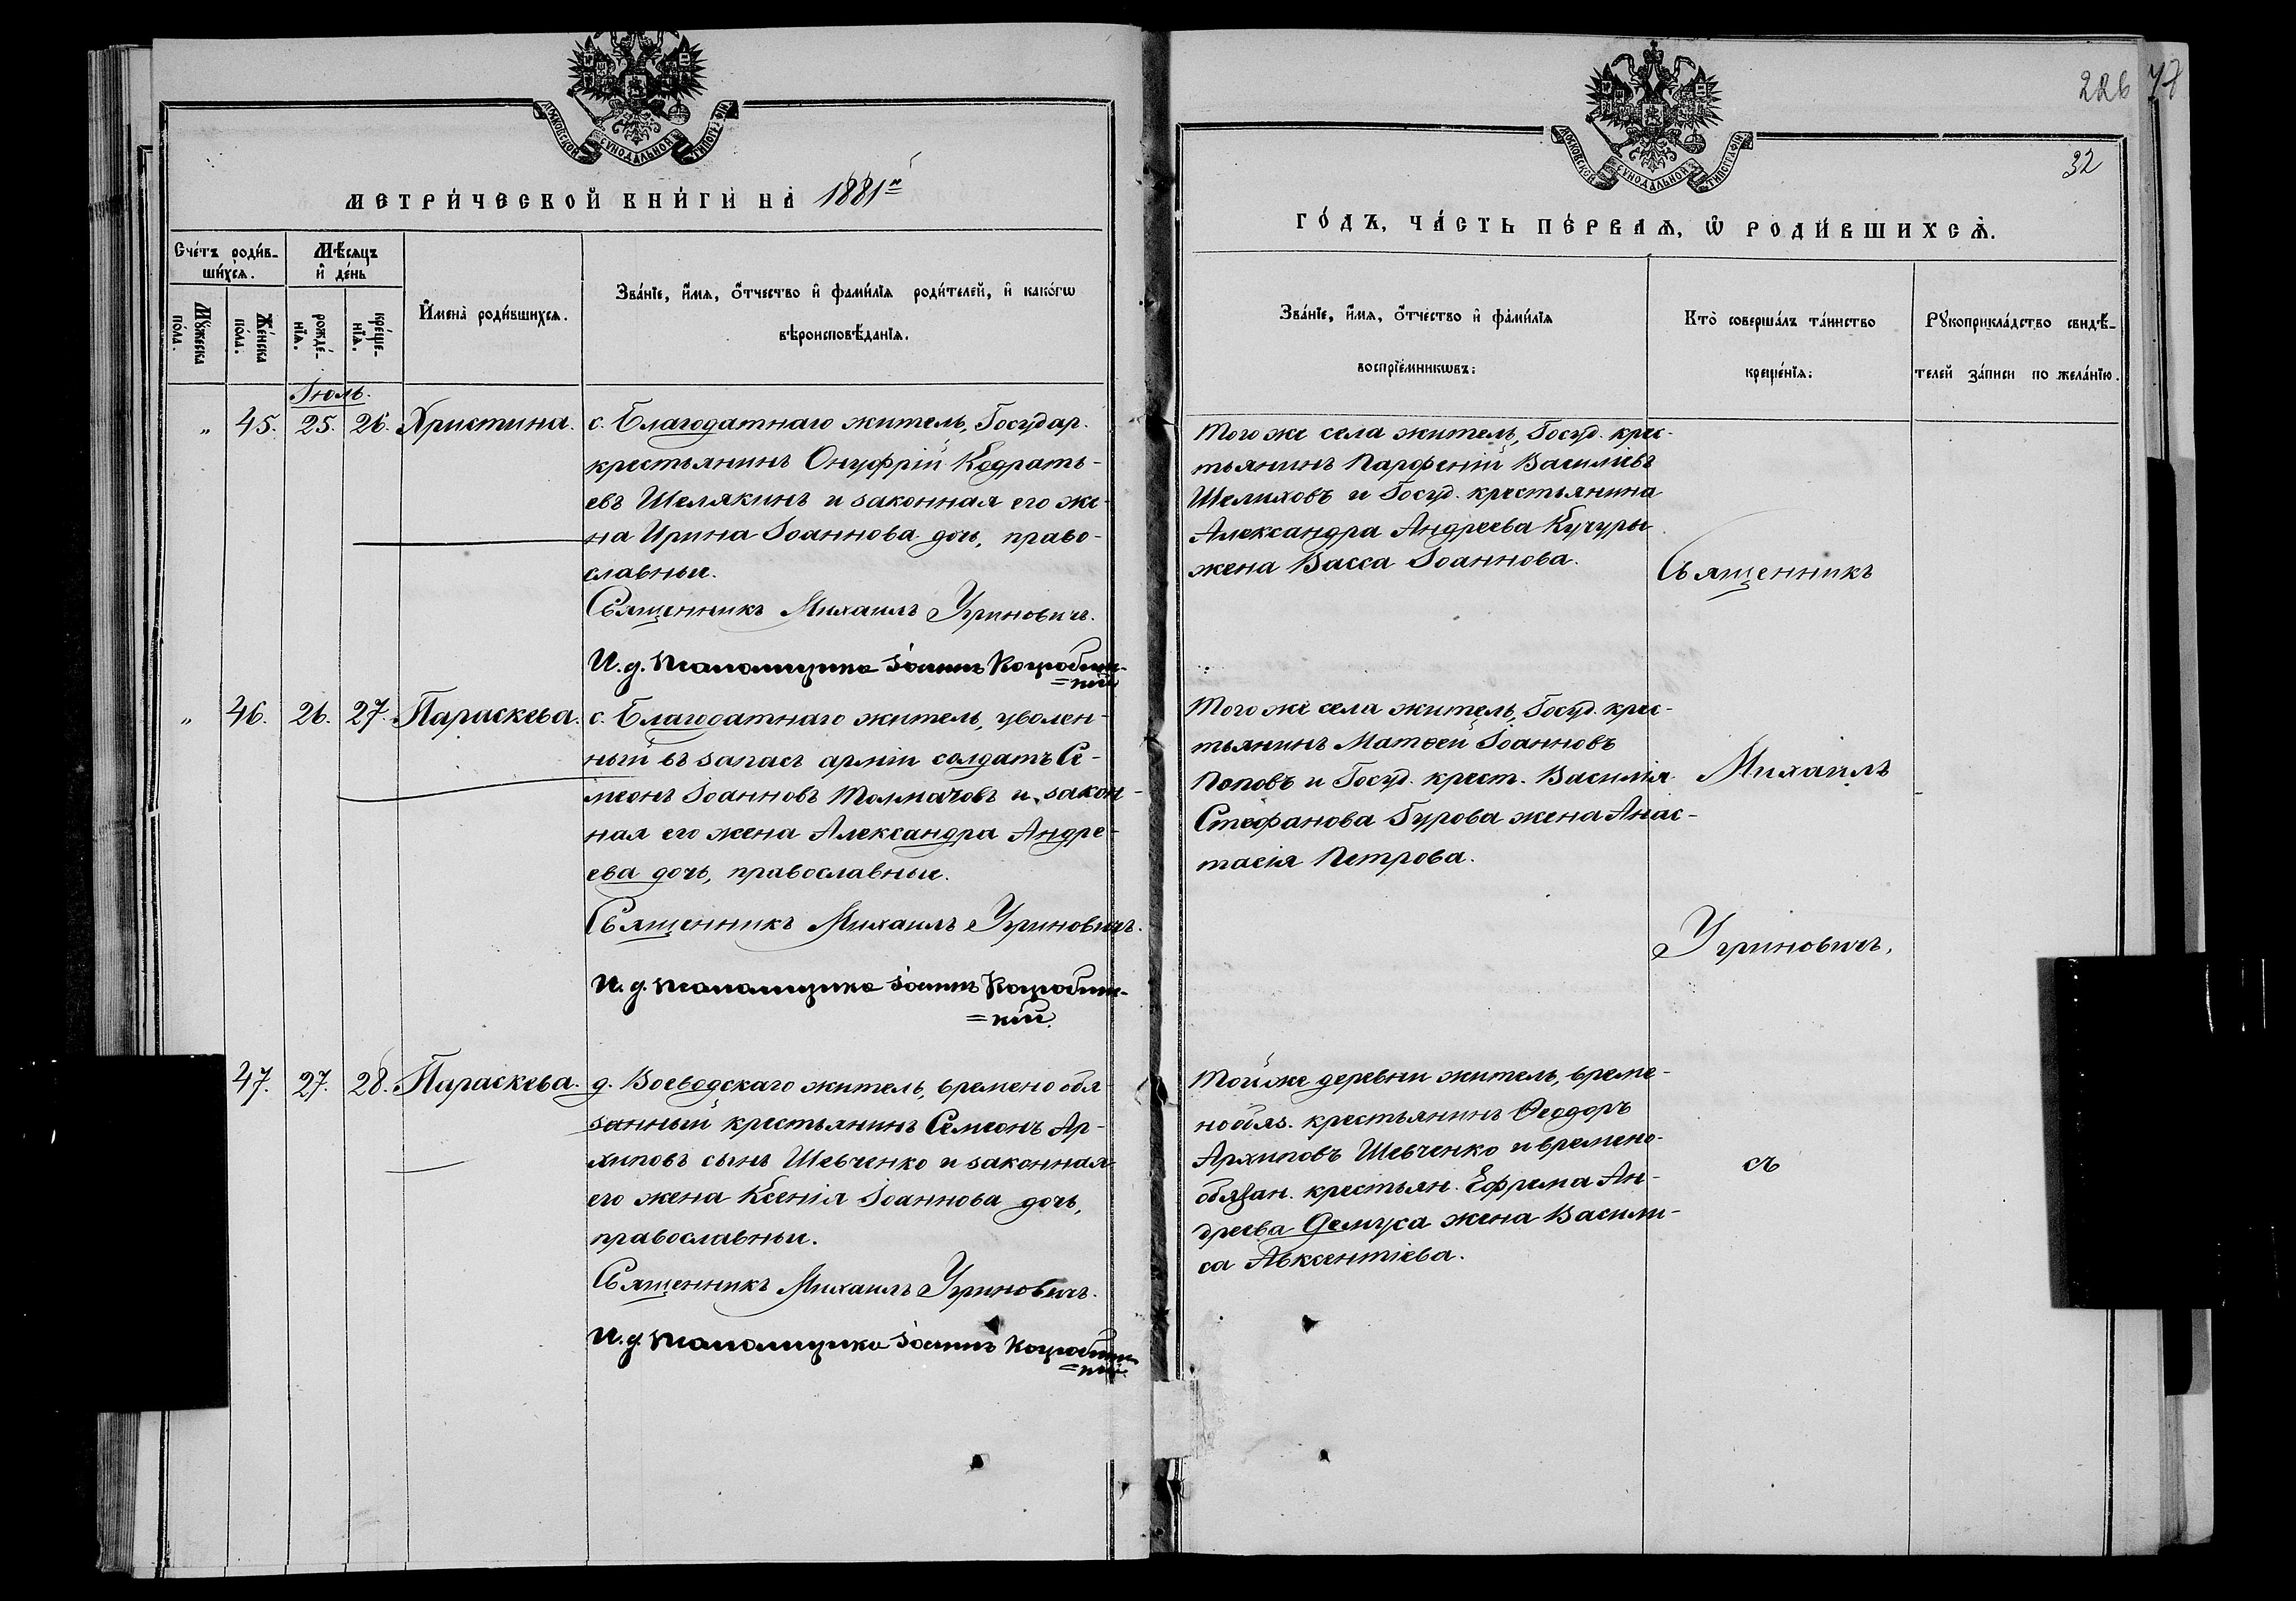 МОСКОВСКОЙ СѴНОДАЛЬНОЙ ТИПОГРАФІИ
МЕТРИ́ЧЕСКОЙ КНИ́ГИ НА 1881й
Сче́тъ роди́в-
шихся.
Мѣ́сяцъ
и де́нь
Мꙋ́жеска
по́ла.
Же́нска
по́ла.
рожде́-
нія.
креще́-
нія.
Имена̀ роди́вшихся.
Зва́ніе, и́мя, о́тчество и фами́лія роди́телей, и како́гѡ
вѣроисповѣ́данія.
Іюль.
„ 45. 25. 26. Христина.
с. Благодатнаго житель, Государ.
крестьянинъ Онуфрій Кодрать-
евъ Шелякинъ и законная его же-
на Ирина Іоаннова дочь, право-
славные.
Священникъ Михаилъ Угриновичъ.
И. д. Паламщика Іоаннъ
„ 46. 26. 27. Параскева.
с. Благодатнаго житель, уволен-
ный въ запасъ арміи солдатъ Се-
меонъ Іоанновъ Толмачовъ и закон-
ная его жена Александра Андре-
ева дочь, православные.
Священникъ Михаилъ Угриновичъ.
И. д. Паламщика Іоаннъ
47. 27. 28. Параскева.
д. Воеводскаго житель, времено обя-
занный крестьянинъ Семеонъ Ар-
хиповъ сынъ Шевченко и законная
его жена Ксенія Іоаннова дочь,
православные.
Священникъ Михаилъ Угриновичъ.
И. д. Паламщика Іоаннъ
226 77
32
МОСКОВСКОЙ СѴНОДАЛЬНОЙ ТИПОГРАФІИ
ГО́ДЪ, ЧА́СТЬ ПЕ́РВАЯ, Ѿ РОДИ́ВШИХСЯ.
Зва́ніе, и́мя, о́тчество и фами́лія
воспріе́мникѡвъ:
Кто̀ соверша́лъ та́инство
креще́нія:
Рꙋкоприкла́дство свидѣ́-
телей за́писи по жела́нію.
Того же села житель, Госуд. крес-
тьянинъ Парфеній Василіевъ
Шелиховъ и Госуд. крестьянина
Александра Андреева Кучуры
жена Васса Іоаннова.
Священникъ
Того же села житель, Госуд. крес-
тьянинъ Матѳей Іоанновъ
Поповъ и Госуд. крест. Василія
Стефанова Гурова жена Анас-
тасія Петрова.
Михаилъ
Угриновичъ,
Той же деревни житель, време-
нообяз. крестьянинъ Ѳеодоръ
Архиповъ Шевченко и времено-
обязан. крестьян. Ефрема Ан-
дреева Демуса жена Васили-
са Авксентіева.
съ